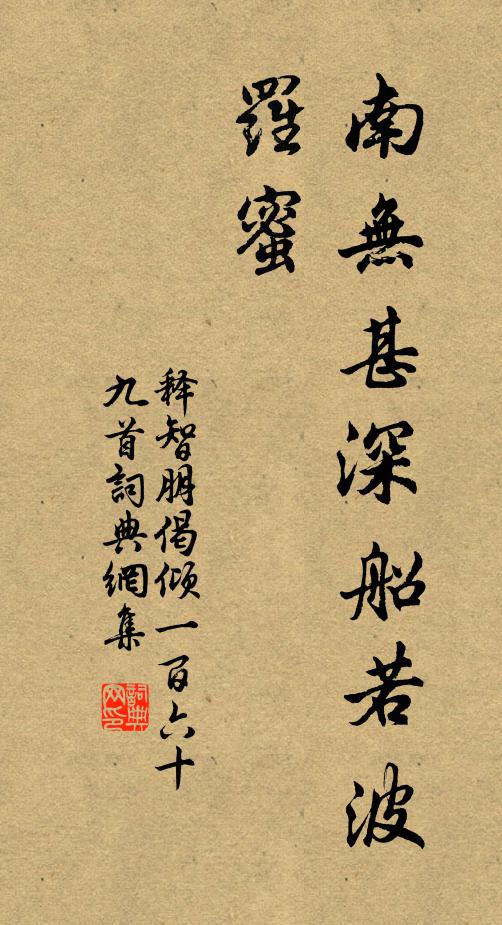 南無甚深船若波
羅蜜
释智朋偈倾一百六十
九首詞典網集
詞典
网印